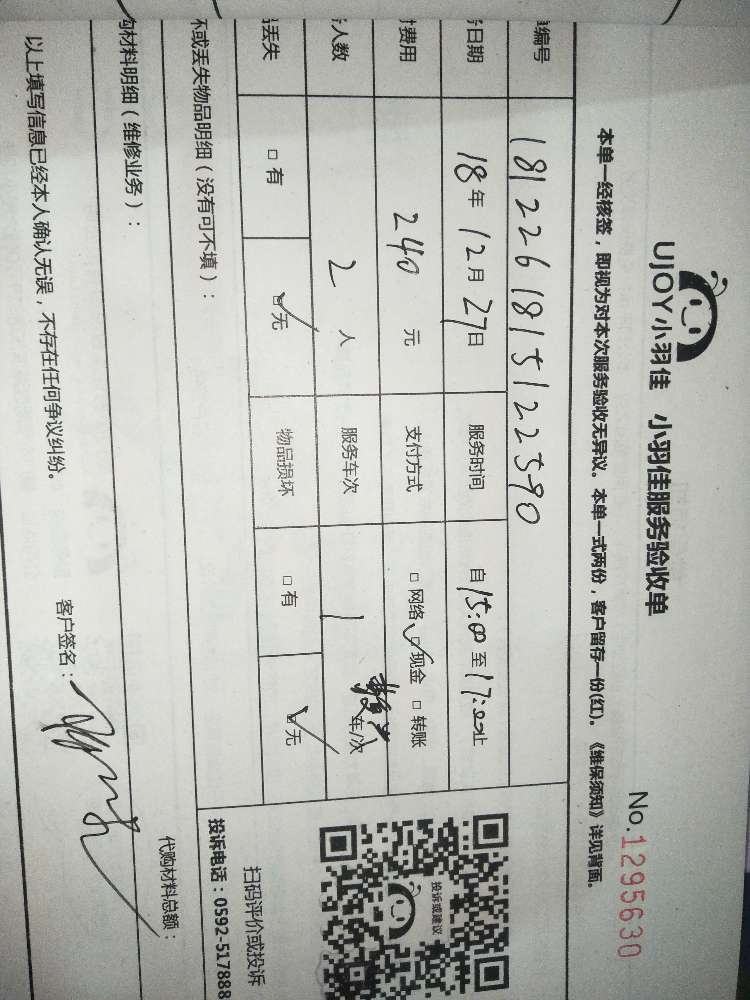 UJOY小羽佳 小羽佳服务验收单
No.1295630
本单一经核签，即视为对本次服务验收无异议。本单一式两份，客户留存一份(红)。《维保须知》详见背面。
编号 1812261815122590
日期 18年12月27日 服务时间 自15:00至17:00止
费用 240元 支付方式 □网络 ☑现金 □转账
人数 2人 服务车次 1 车/次
丢失 □有 ☑无 物品损坏 □有 ☑无
坏或丢失物品明细（没有可不填）：
投诉或建议
扫码评价或投诉
投诉电话：0592-517888
购材料明细（维修业务）：
代购材料总额：
以上填写信息已经本人确认无误，不存在任何争议纠纷。 客户签名：